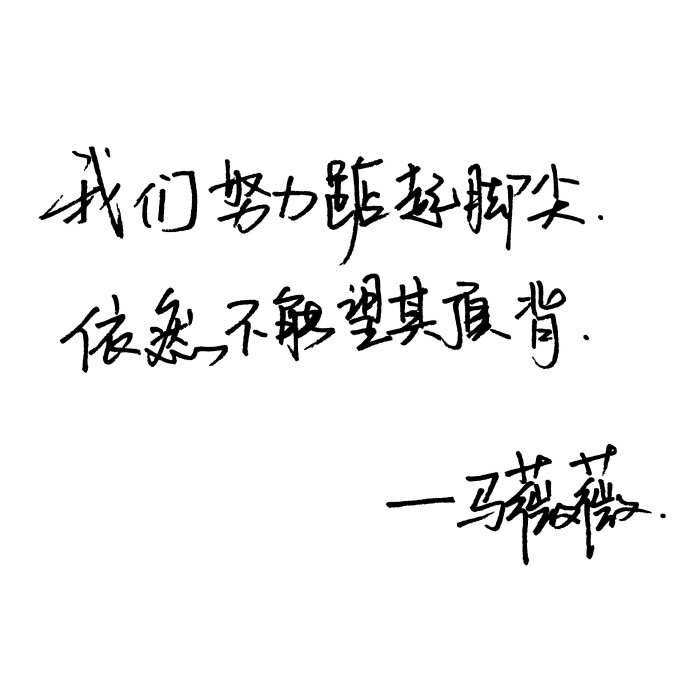 我们努力踮起脚尖.
依然不能望其顶背.
—马薇薇.